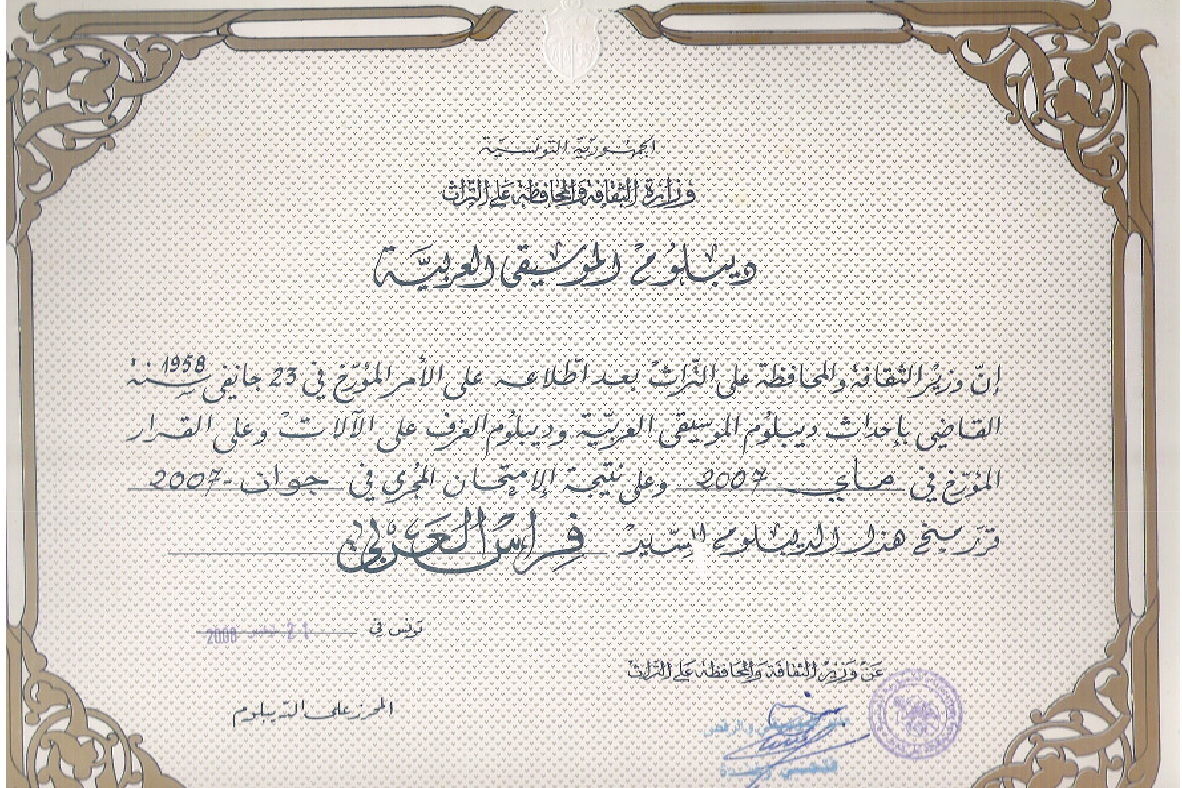 الجمهورية التونسية
وزارة الثقافة والمحافظة على التراث
ديبلوم الموسيقى العربية
إنّ وزير الثقافة والمحافظة على التّراث بعد اطلاعه على الأمر المؤرّخ في 23 جانفي سنة 1958
القاضي بإحداث ديبلوم الموسيقى العربيّة وديبلوم العزف على الآلات وعلى القرار
المؤرّخ في ماي 2007 وعلى نتيجة الإمتحان المجرى في جوان 2007
قرّر منح هذا الديبلوم للسّيد فراس العربي
تونس في 21 2008
عن وزير الثقافة والمحافظة على التراث
المحرز على الديبلوم
والرقص
فتحي